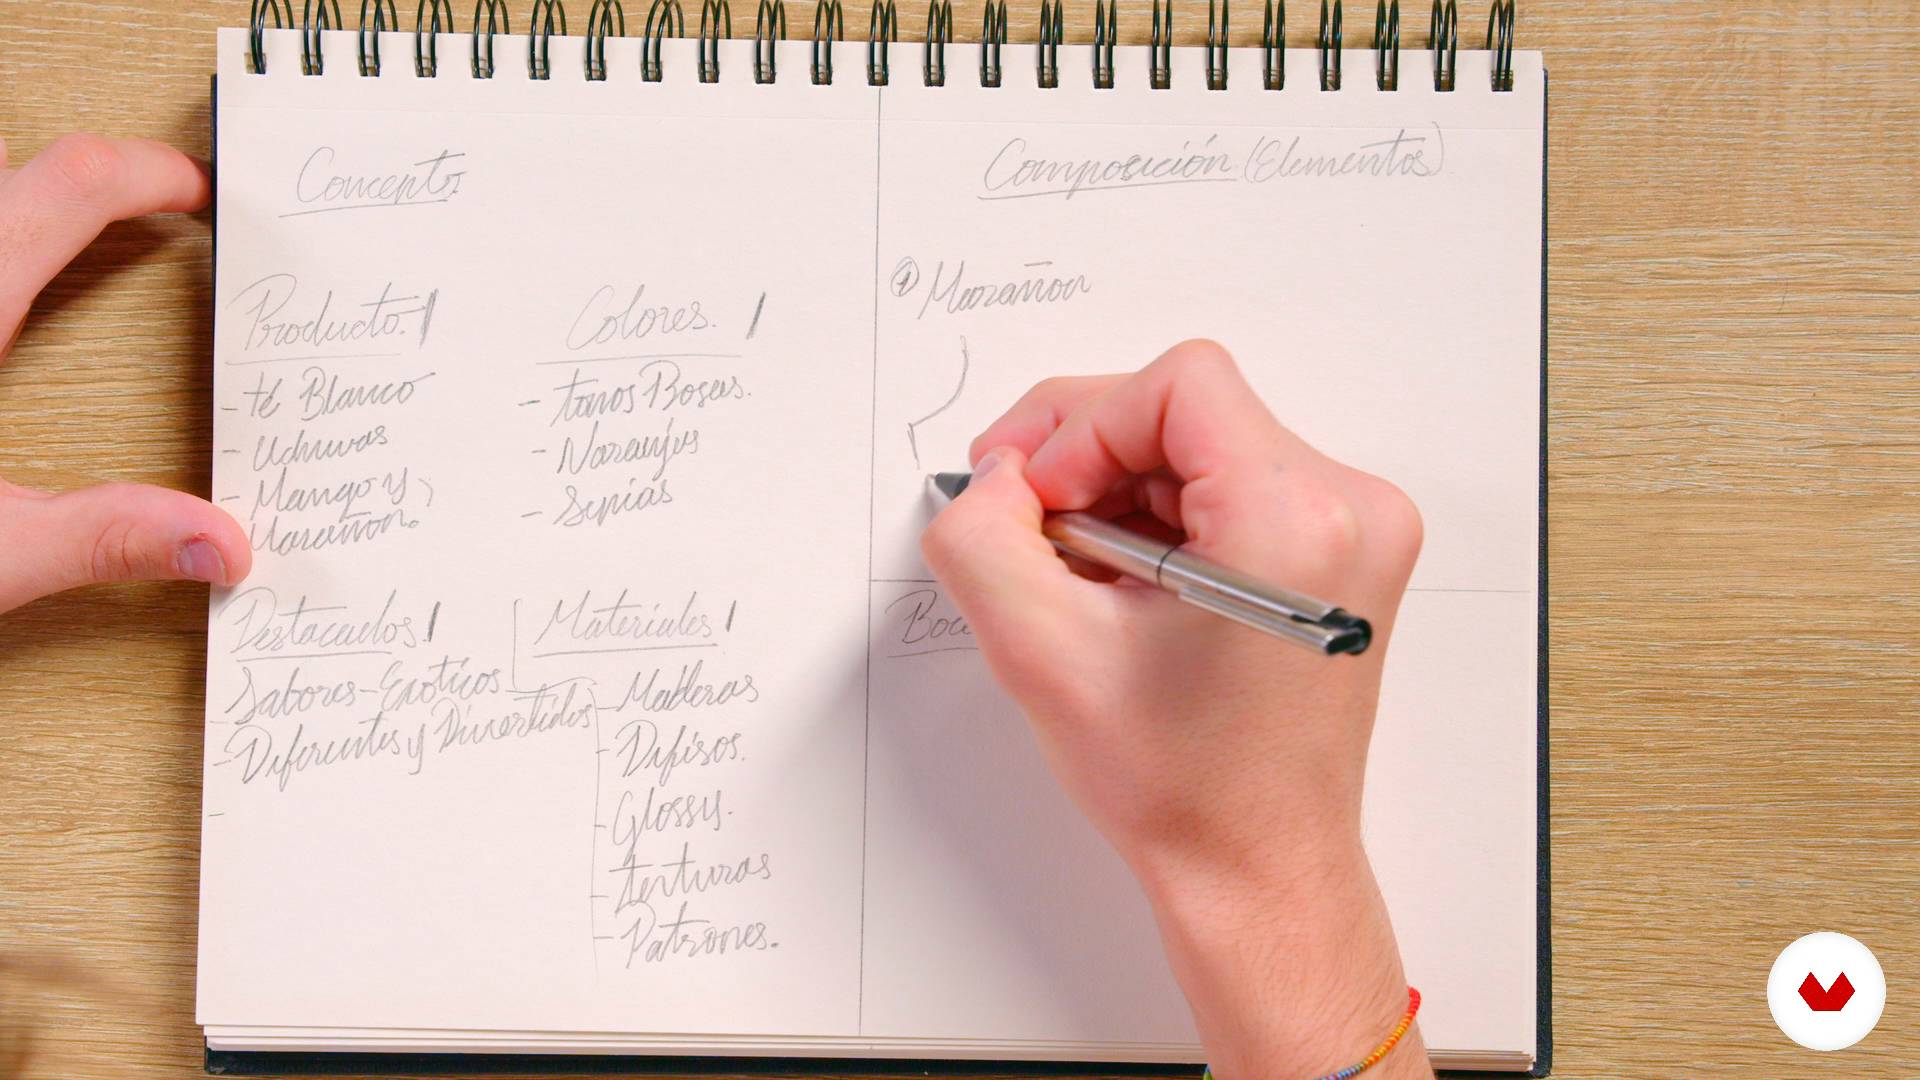 Concepto
Producto.
- té Blanco
- Uchuvas
- Mango y
Marañon.
Colores.
- tonos Rosas.
- Naranjas
- Sepias
Destacados
Sabores - Exoticos
- Diferentes y Divertidos
-
Materiales
- Maderas
- Difisos.
- Glossy.
- texturas
- Patrones.
Composición (Elementos)
1 Marañon
Boc